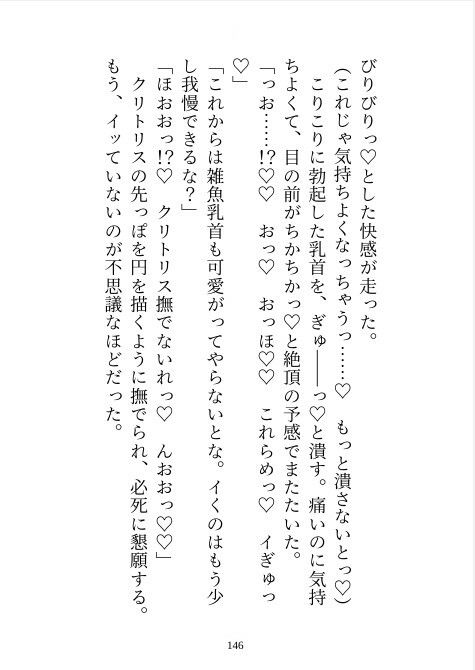 びりびりっ♡とした快感が走った。
（これじゃ気持ちよくなっちゃうっ……♡　もっと潰さないとっ♡）
　こりこりに勃起した乳首を、ぎゅ――っ♡と潰す。痛いのに気持
ちよくて、目の前がちかちかっ♡と絶頂の予感でまたたいた。
「っお……!?♡♡　おっ♡　おっほ♡♡　これらめっ♡　イぎゅっ
♡」
「これからは雑魚乳首も可愛がってやらないとな。イくのはもう少
し我慢できるな？」
「ほおおっ!?♡　クリトリス撫でないれっ♡　んおおっ♡♡」
　クリトリスの先っぽを円を描くように撫でられ、必死に懇願する。
もう、イッていないのが不思議なほどだった。
146